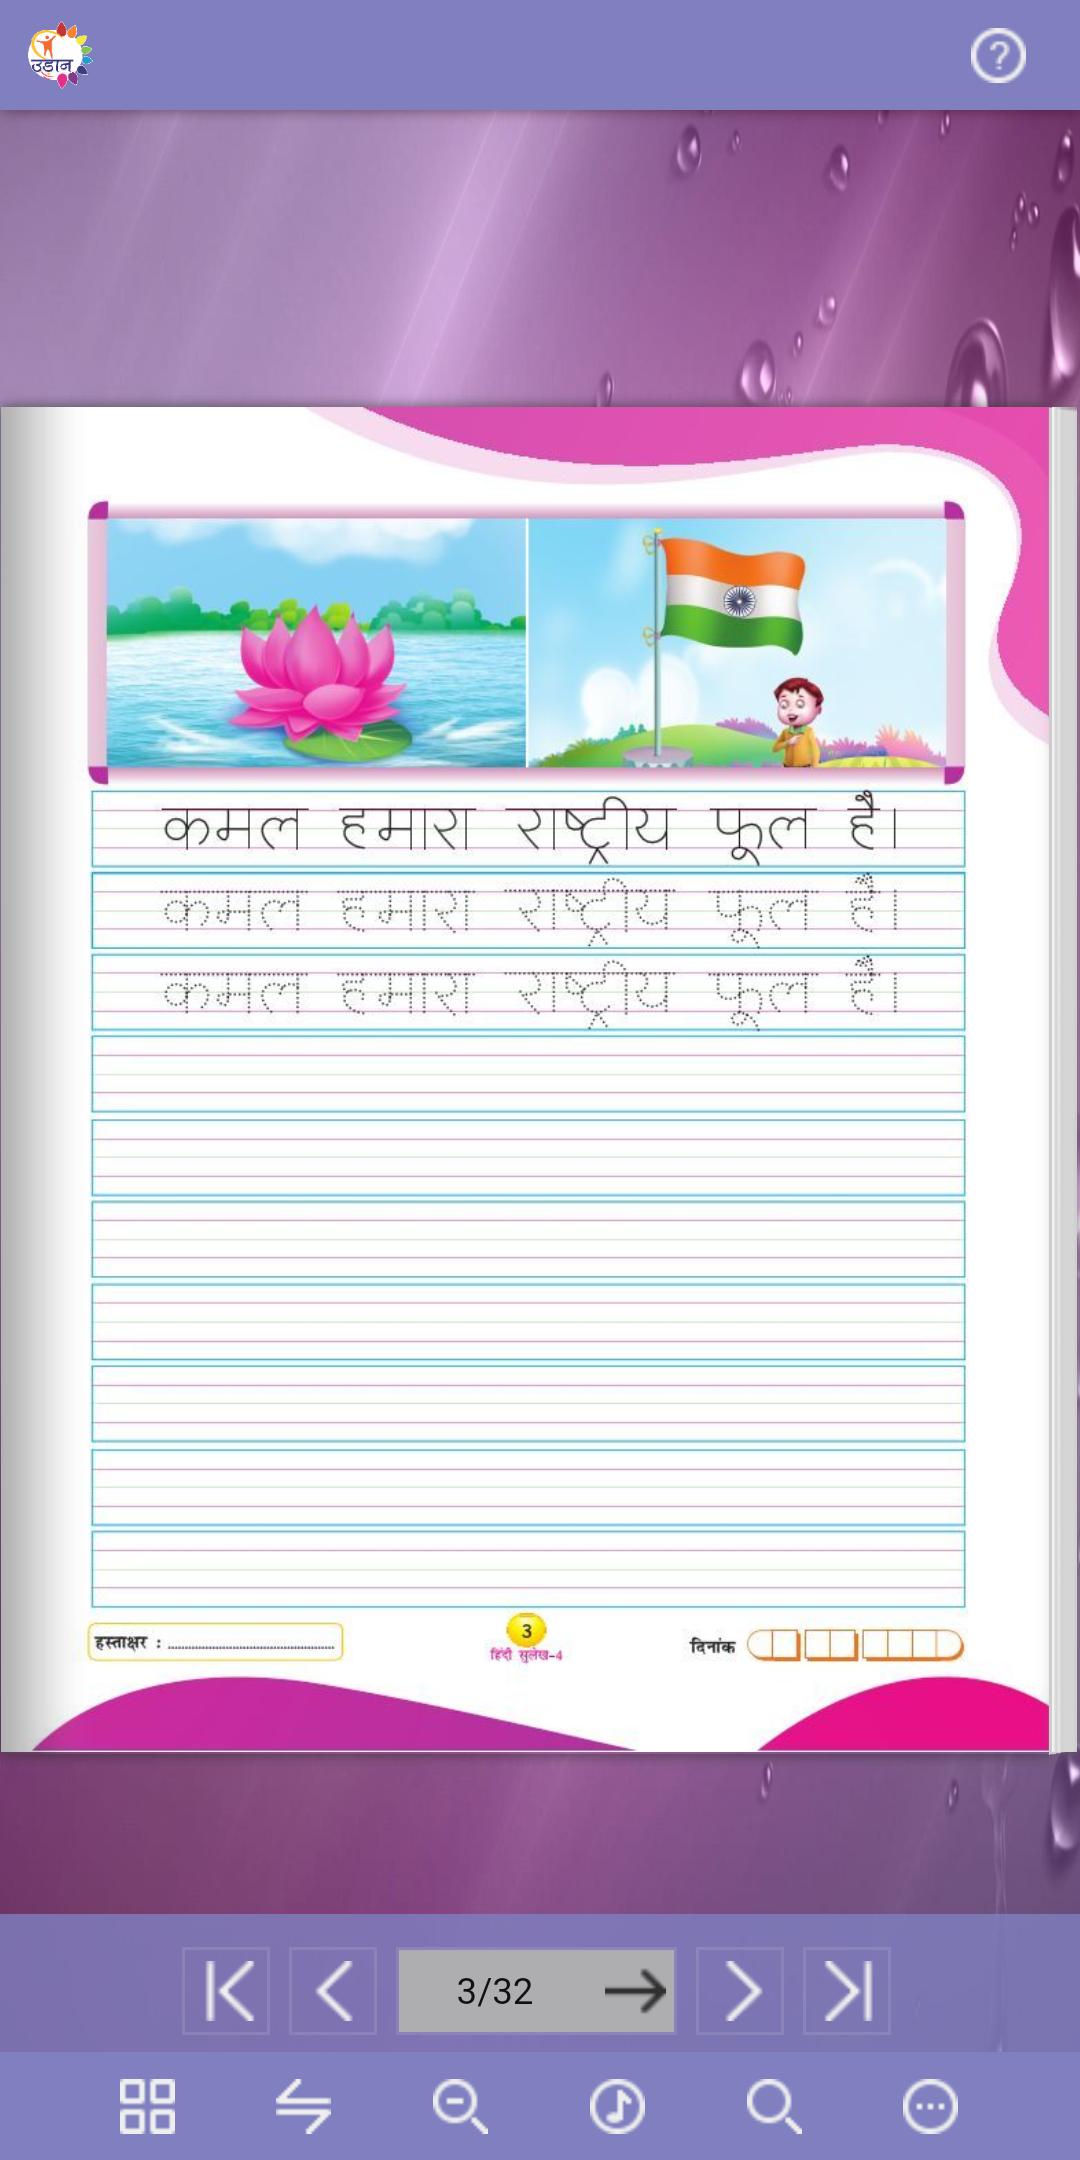 उड़ान
?
कमल हमारा राष्ट्रीय फूल है।
कमल हमारा राष्ट्रीय फूल है।
कमल हमारा राष्ट्रीय फूल है।
हस्ताक्षर : ..........................................................
3
हिंदी सुलेख-4
दिनांक
3/32